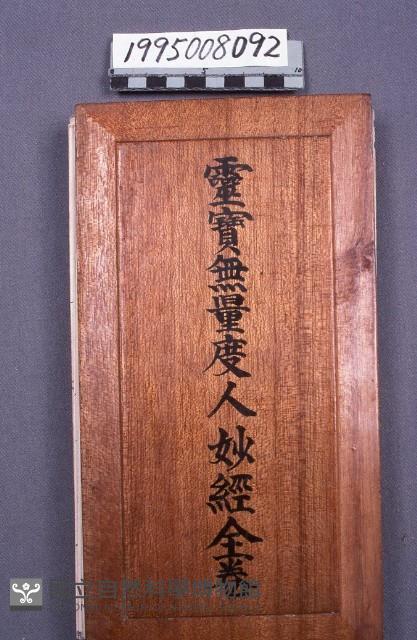 1995008092
5
10
靈寶無量度人妙經全卷
國立自然科學博物館